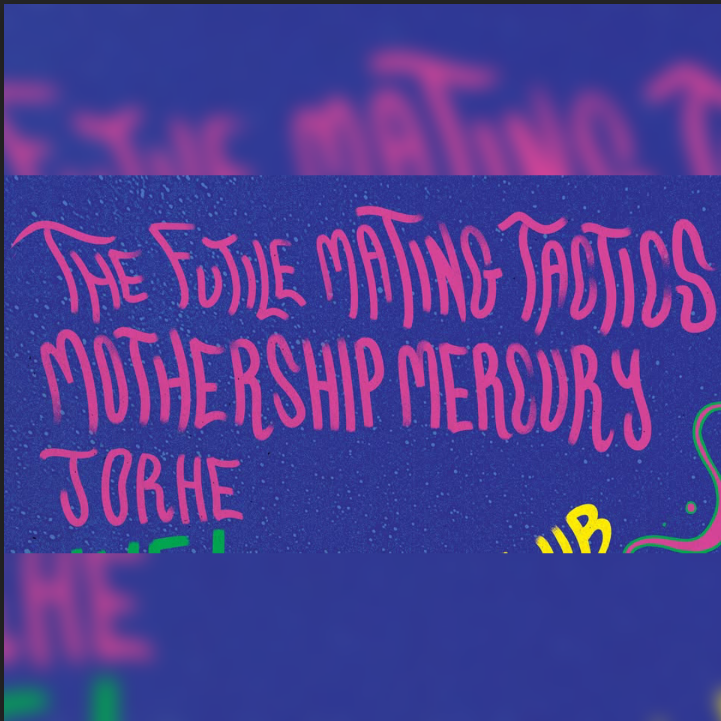 THE FUTILE MATING TACTICS
MOTHERSHIP MERCURY
JORHE